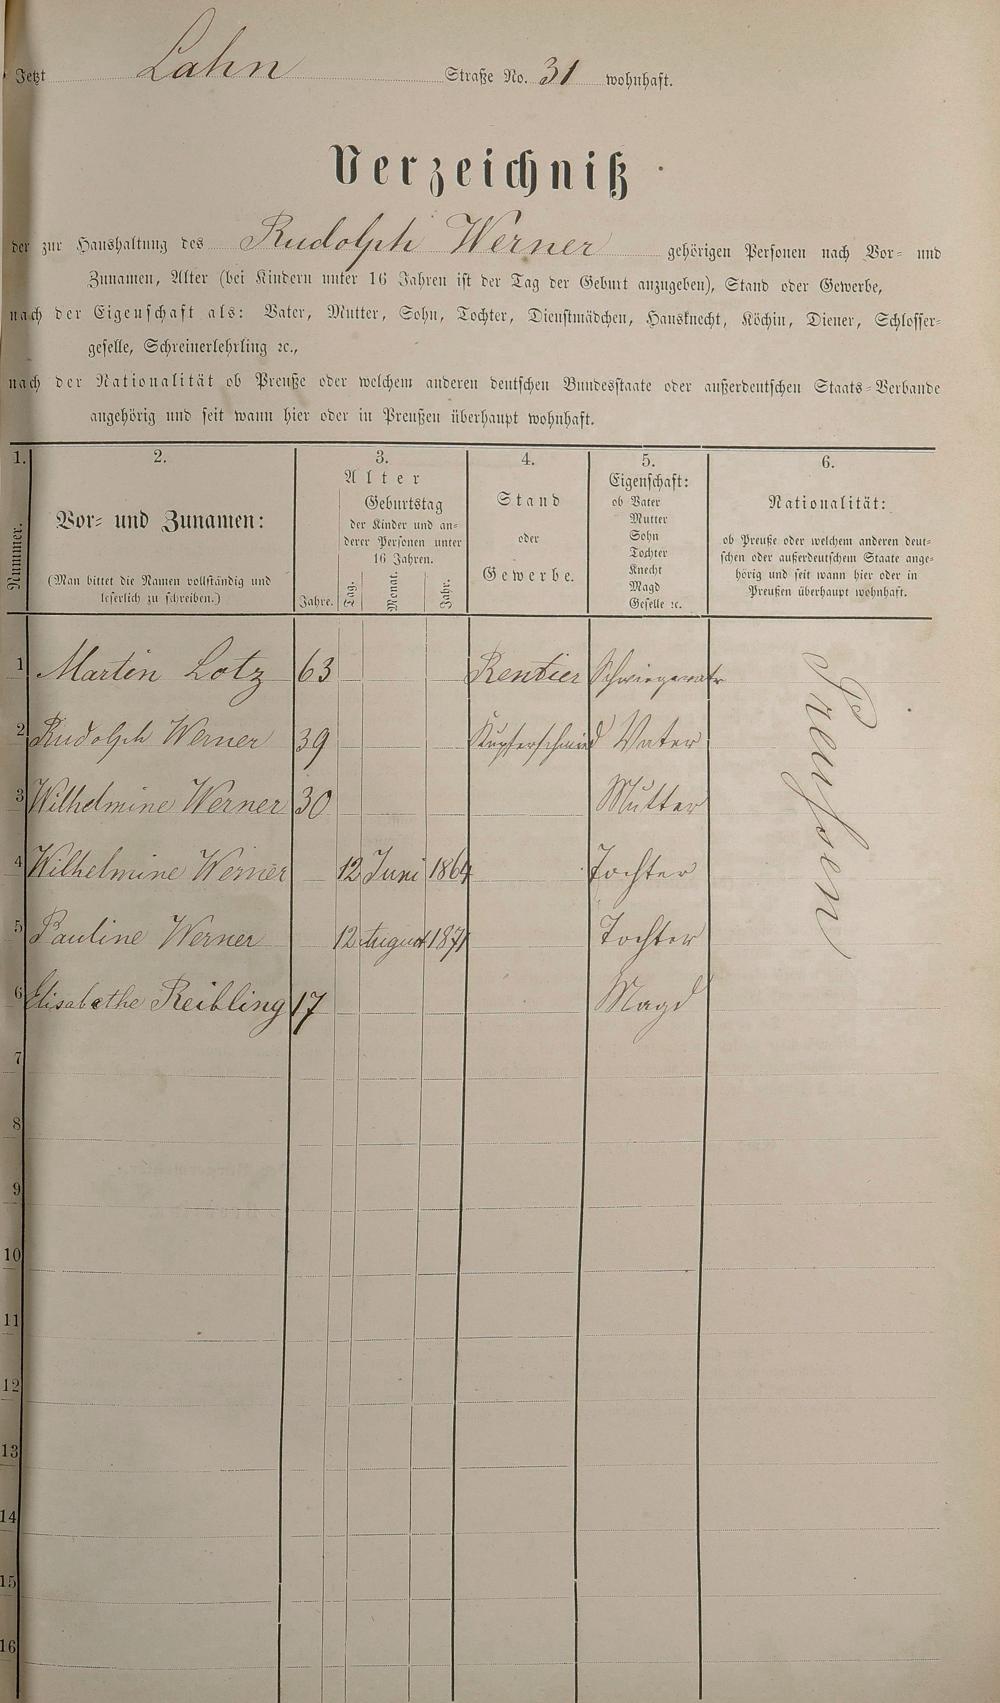 Jetzt Lahn Straße No. 31 wohnhaft.
Verzeichniß
der zur Haushaltung des Rudolph Werner gehörigen Personen nach Vor- und
Zunamen, Alter (bei Kindern unter 16 Jahren ist der Tag der Geburt anzugeben), Stand oder Gewerbe,
nach der Eigenschaft als: Vater, Mutter, Sohn, Tochter, Dienstmädchen, Hausknecht, Köchin, Diener, Schlosser-
geselle, Schreinerlehrling ꝛc.,
nach der Nationalität ob Preuße oder welchem anderen deutschen Bundesstaate oder außerdeutschen Staats-Verbande
angehörig und seit wann hier oder in Preußen überhaupt wohnhaft.
1.
Nummer.
2.
Vor- und Zunamen:
(Man bittet die Namen vollständig und
leserlich zu schreiben.)
3.
Alter
Geburtstag
der Kinder und an-
derer Personen unter
16 Jahren.
Jahre. Tag. Monat. Jahr.
4.
Stand
oder
Gewerbe.
5.
Eigenschaft:
ob Vater
Mutter
Sohn
Tochter
Knecht
Magd
Geselle ꝛc.
6.
Nationalität:
ob Preuße oder welchem anderen deut-
schen oder außerdeutschem Staate ange-
hörig und seit wann hier oder in
Preußen überhaupt wohnhaft.
1 Martin Lotz 63 Rentier Schwiegervatr
2 Rudolph Werner 39 Kupferschmied Vater
3 Wilhelmine Werner 30 Mutter
4 Wilhelmine Werner 12 Juni 1864 Tochter
5 Pauline Werner 12 August 1871 Tochter
6 Elisabethe Reibling 17 Magd
Preußen
7
8
9
10
11
12
13
14
15
16